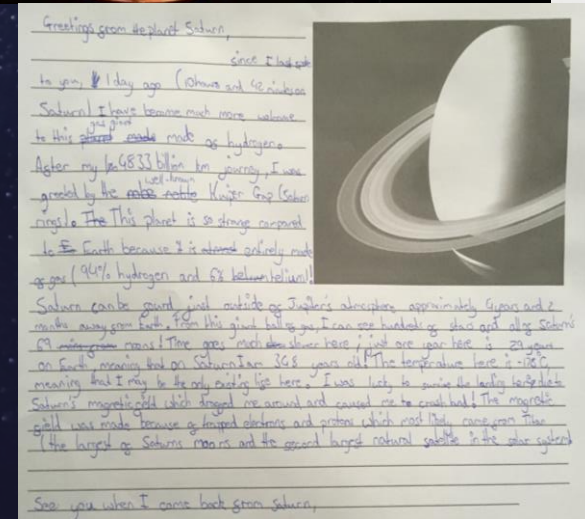 Greetings from the planet Saturn,
since I last spoke
to you, 1 day ago (10 hours and 42 minutes on
Saturn) I have become much more welcome
to this gas giant made of hydrogen.
After my 4833 billion km journey, I was
greeted by the well-known Kuiper Gap (Saturn
rings). This planet is so strange compared
to Earth because it is entirely made
of gas (94% hydrogen and 6% helium)!
Saturn can be found just outside of Jupiter's atmosphere approximately 4 years and 2
months away from Earth. From this giant ball of gas, I can see hundreds of stars and all of Saturn's
69 moons! Time goes much slower here; just one year here is 29 years
on Earth, meaning that on Saturn I am 368 years old! The temperature here is
meaning that I may be the only existing life here. I was lucky to survive the landing here due to
Saturn's magnetic field which dragged me around and caused me to crash land! The magnetic
field was made because of trapped electrons and protons which most likely came from Titan
(the largest of Saturns moons and the second largest natural satellite in the solar system)
See you when I come back from Saturn,